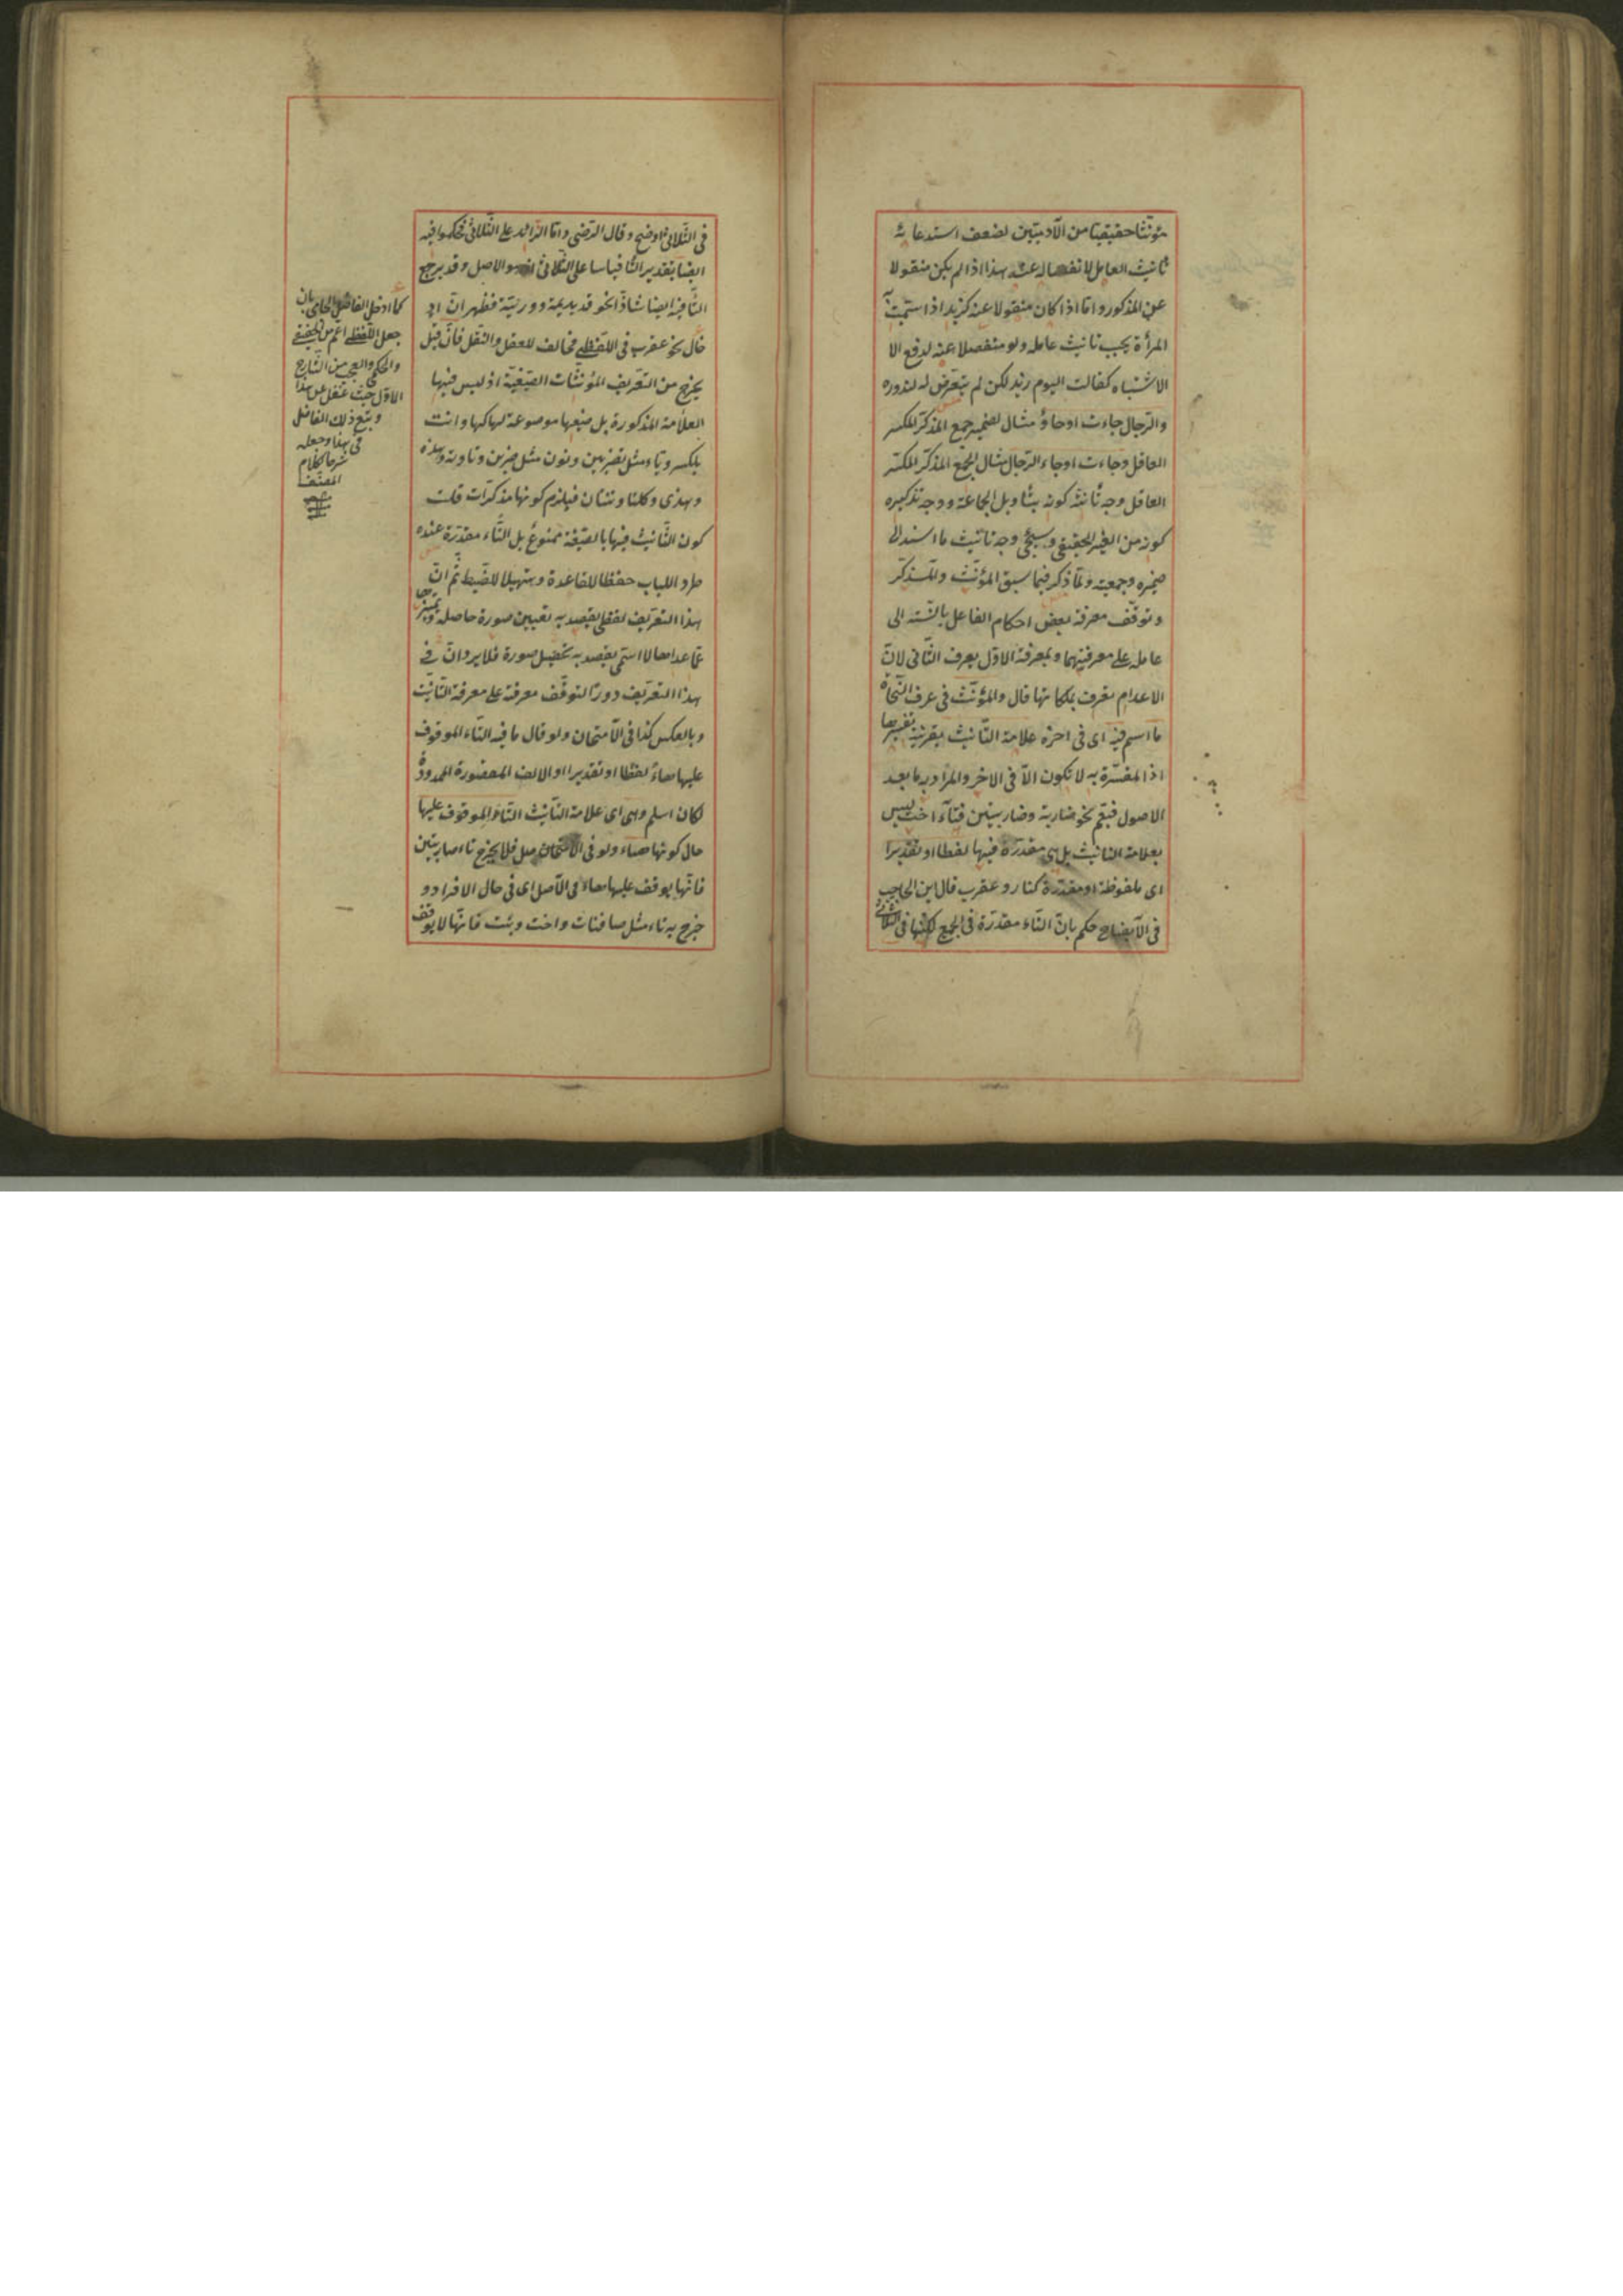 مؤنثا حقيقيا من الآدميين لضعف استدعائه
تأنيث العامل لانفصاله عنه هذا اذا لم يكن منقولا
عن المذكور واما اذا كان منقولا عنه كزيد اذا سميت به
المرأة يجب تأنيث عامله ولو منفصلا عنه لدفع الا
الاشتباه كقالت اليوم زيد لكن لم يتعرض له لندوره
والرجال جاءت اوجاؤ مثال لضمير جمع المذكر المكسر
العاقل وجاءت اوجاء الرجال مثال لجمع المذكر المكسر
العاقل وجه تأنيثه كونه بتأويل الجماعة ووجه تذكيره
كونه من الغير الحقيقي وسيجئ وجه تأنيث ما اسند الى
ضميره وجمعيته ولما ذكر فيما سبق المؤنث والمذكر
وتوقف معرفة بعض احكام الفاعل بالنسبة الى
عامله على معرفتهما وبمعرفة الاول يعرف الثاني لان
الاعدام تعرف بملكاتها قال والمؤنث في عرف النحاة
ما اسم فيه اى في اخره علامة التأنيث بقرينة تفسيرها
اذ المفسرة به لا تكون الا في الاخر والمراد به ما بعد
الاصول فيعم نحو ضاربة وضاربتين فتاء اخت ليس
بعلامة التانيث بل هي مقدرة فيها لفظا او تقديرا
اى ملفوظة او مقدرة كنار وعقرب قال ابن الحاجب
في الايضاح حكم بان التاء مقدرة في الجمع لكنها في الثلاثي
في الثلاثي اوضح وقال الرضى واما الزائد على الثلاثي فحكموا فيه
ايضا بتقدير التا قياسا على الثلاثي اذ هو الاصل وقد يرجع
التا فيه ايضا شاذا نحو قديديمة ووريئة فظهر ان
خال نحو عقرب في اللفظى مخالف للعقل والنقل فان قيل
يخرج من التعريف المؤنثات الصيغية اذ ليس فيها
العلامة المذكورة بل صيغها موضوعة لها كها وانت
بالكسر وياء مثل تضربين ونون مثل ضربن وتا وته وهذه
وهذى وكلتا وثنتان فيلزم كونها مذكرات قلت
كون التأنيث فيها بالصيغة ممنوع بل التاء مقدرة عنده
طرد اللباب حفظا للقاعدة وتسهيلا للضبط ثم ان
هذا التعريف لفظى يقصد به تعيين صورة حاصلة وتميزها
عما عداها لا اسمى يقصد به تحصيل صورة فلا يرد ان في
هذا التعريف دورا لتوقف معرفته على معرفة التأنيث
وبالعكس كذا في الامتحان ولو قال ما فيه التاء الموقوف
عليها هاء لفظا او تقديرا او الالف المقصورة الممدودة
لكان اسلم وهى اى علامة التأنيث التاء الموقوف عليها
حال كونها هاء ولو في الاصل فلا يخرج تاء ضاربتين
فانها يوقف عليها هاء في الاصل اى في حال الافراد و
خرج به تاء مثل صافنات واخت وبنت فانها لا يوقف
كما ادخل الفاضل الجامى بان
جعل اللفظى اعم من الحقيقى
والحكمى والعجب من الشارح
الاول حيث غفل عن هذا
وتبع ذلك الفاضل
في هذا وجعله
شرحا لكلام
المصنف